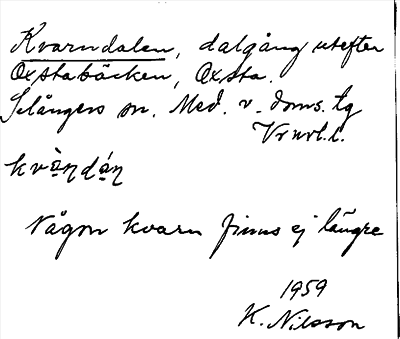 Kvarndalen, dalgång utefter
Oxstabäcken, Oxsta.
Selångers sn. Med. v. doms. tg
Vrnrl. l.
kvàṇdáṇ
Någon kvarn finns ej längre
1959
K. Nilsson